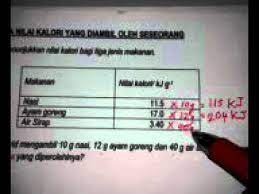 NILAI KALORI YANG DIAMBIL OLEH SESEORANG
nunjukkan nilai kalori bagi tiga jenis makanan.
Makanan Nilai kalori/ kJ g⁻¹
Nasi 11.5 × 10g = 115 KJ
Ayam goreng 17.0 × 12g = 204 KJ
Air Sirap 3.40 ×
mengambil 10 g nasi, 12 g ayam goreng dan 40 g air
yang diperolehinya?